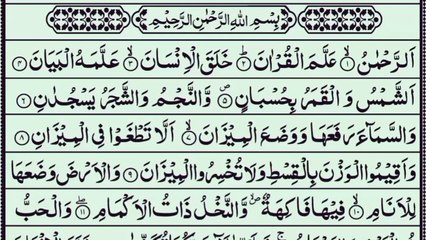 بِسْمِ اللهِ الرَّحْمٰنِ الرَّحِيْمِ
اَلرَّحْمٰنُ ۙ﴿۱﴾ عَلَّمَ الْقُرْاٰنَ ؕ﴿۲﴾ خَلَقَ الْاِنْسَانَ ۙ﴿۳﴾ عَلَّمَهُ الْبَيَانَ ﴿۴﴾
اَلشَّمْسُ وَ الْقَمَرُ بِحُسْبَانٍ ۪﴿۵﴾ وَّالنَّجْمُ وَ الشَّجَرُ يَسْجُدٰنِ ﴿۶﴾
وَالسَّمَآءَ رَفَعَهَا وَ وَضَعَ الْمِيْزَانَ ۙ﴿۷﴾ اَلَّا تَطْغَوْا فِى الْمِيْزَانِ ﴿۸﴾
وَ اَقِيْمُوا الْوَزْنَ بِالْقِسْطِ وَلَا تُخْسِرُوا الْمِيْزَانَ ﴿۹﴾ وَ الْاَرْضَ وَضَعَهَا
لِلْاَنَامِ ۙ﴿۱۰﴾ فِيْهَا فَاكِهَةٌ ۪ۙ وَّالنَّخْلُ ذَاتُ الْاَكْمَامِ ۖ﴿۱۱﴾ وَ الْحَبُّ